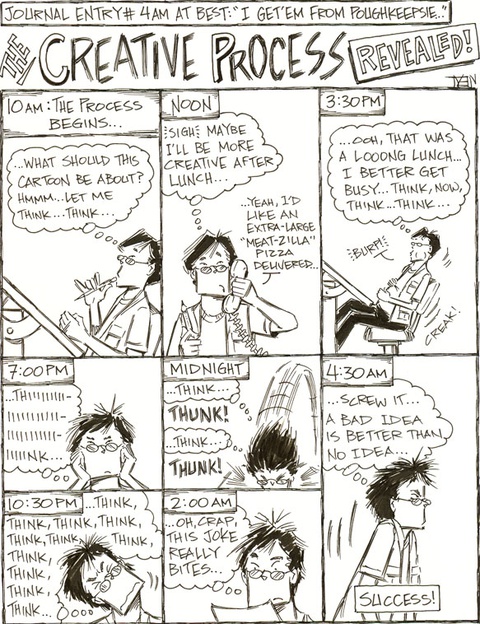 JOURNAL ENTRY# 4AM AT BEST: "I GET'EM FROM POUGHKEEPSIE.."
THE CREATIVE PROCESS REVEALED!
10 AM: THE PROCESS
BEGINS...
...WHAT SHOULD THIS
CARTOON BE ABOUT?
HMMM...LET ME
THINK...THINK...
NOON
SIGH MAYBE
I'LL BE MORE
CREATIVE AFTER
LUNCH...
...YEAH, I'D
LIKE AN
EXTRA-LARGE
"MEAT-ZILLA"
PIZZA
DELIVERED...
3:30 PM
...OOH, THAT WAS
A LOOONG LUNCH...
I BETTER GET
BUSY...THINK, NOW,
THINK...THINK...
BURP!
CREAK!
7:00 PM
...THIIIIIIII-
IIIIIIIIIII-
IIIIIIIIIII-
IIIIINK...
10:30 PM
...THINK,
THINK, THINK, THINK,
THINK, THINK, THINK,
THINK,
THINK,
THINK,
THINK...
MIDNIGHT
...THINK...
THUNK!
...THINK...
THUNK!
2:00 AM
...OH, CRAP,
THIS JOKE
REALLY
BITES...
4:30 AM
...SCREW IT...
A BAD IDEA
IS BETTER THAN
NO IDEA...
SUCCESS!